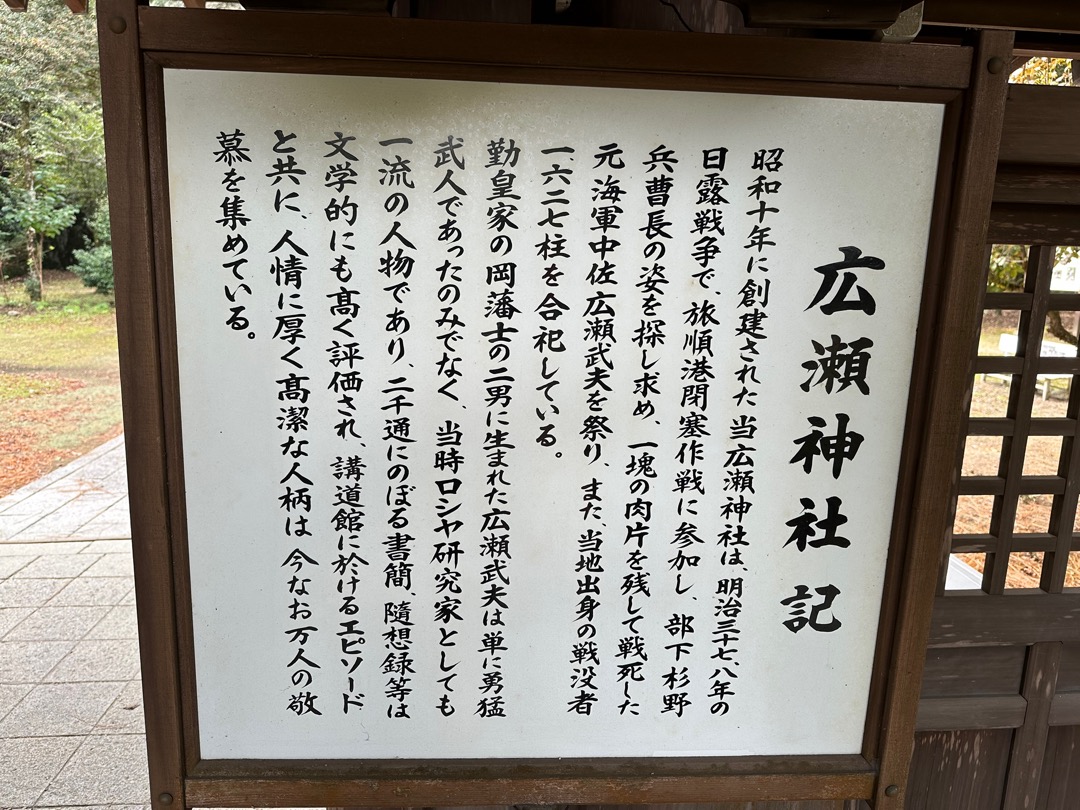 広瀬神社記
昭和十年に創建された当広瀬神社は、明治三十七、八年の
日露戦争で、旅順港閉塞作戦に参加し、部下杉野
兵曹長の姿を探し求め、一塊の肉片を残して戦死した
元海軍中佐広瀬武夫を祭り、また、当地出身の戦没者
一、六二七柱を合祀している。
勤皇家の岡藩士の二男に生まれた広瀬武夫は単に勇猛
武人であったのみでなく、当時ロシヤ研究家としても
一流の人物であり、二千通にのぼる書簡、隨想録等は
文学的にも髙く評価され、講道館に於けるエピソード
と共に、人情に厚く髙潔な人柄は今なお万人の敬
慕を集めている。